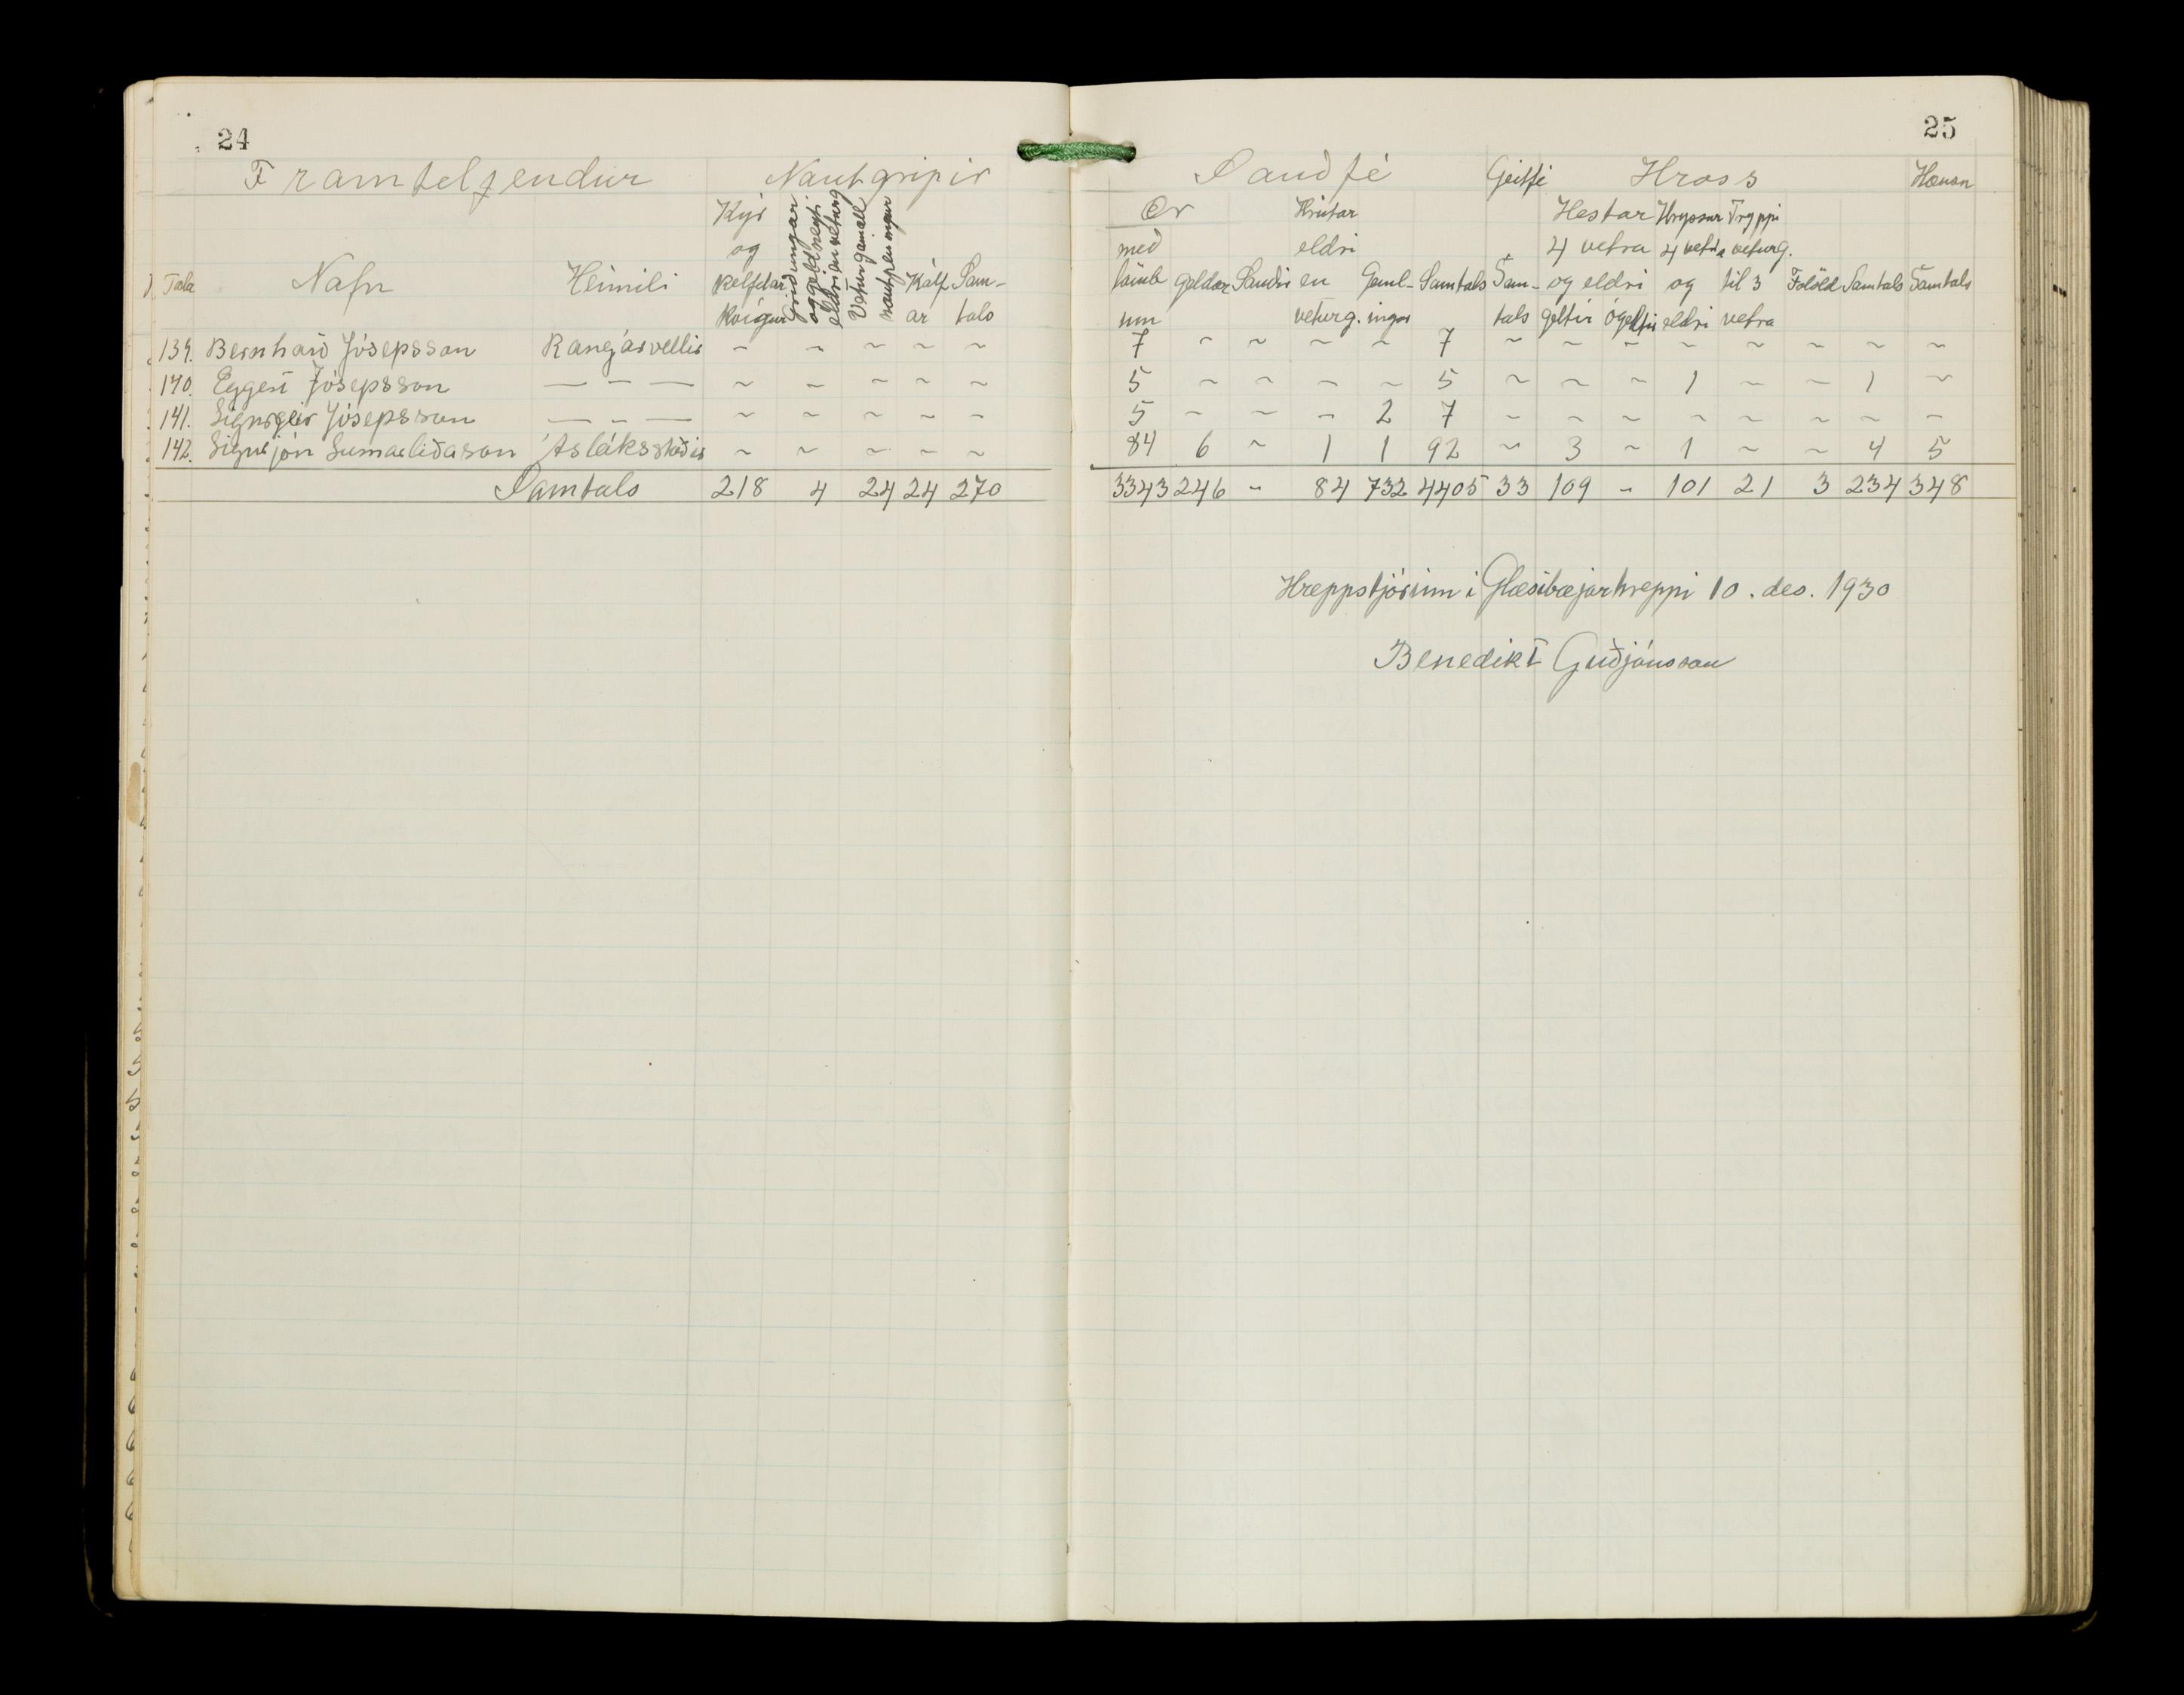 24
Framteljendur Nautgripir
Kýr og kelfdar kvígur
Griðungar og geldneyti eldri en veturg.
Veturgamall nautpeningur
Tala Nafn Heimili Kálfar Samtals
139. Bernharð Jósepsson Ranejárvellir ~ ~ ~ ~ ~
140. Eggert Jósepsson — – — ~ ~ ~ ~ ~
141. Sigurgeir Jósepsson — – — ~ ~ ~ ~ ~
142. Sigurjón Sumarliðason Ásláksstaðir ~ ~ ~ ~ ~
Samtals 218 4 24 24 270
25
Sauðfé Geitfé Hross Hænsn
Ær Hrútar Hestar Hryssur Tryppi
með eldri 4 vetra 4 vetra veturg.
lömb geldar Sauðir en Geml- Samtals Sam- og eldri og til 3 Folöld Samtals Samtals
um veturg. ingar tals geltir ógeltir eldri vetra
7 ~ ~ ~ ~ 7 ~ ~ ~ ~ ~ ~ ~ ~
5 ~ ~ ~ ~ 5 ~ ~ ~ 1 ~ ~ 1 ~
5 ~ ~ ~ 2 7 ~ ~ ~ ~ ~ ~ ~ ~
84 6 ~ 1 1 92 ~ 3 ~ 1 ~ ~ 4 5
3343 246 - 84 732 4405 33 109 - 101 21 3 234 348
Hreppstjórinn í Glæsibæjarhreppi 10. des. 1930
Benedikt Guðjónsson